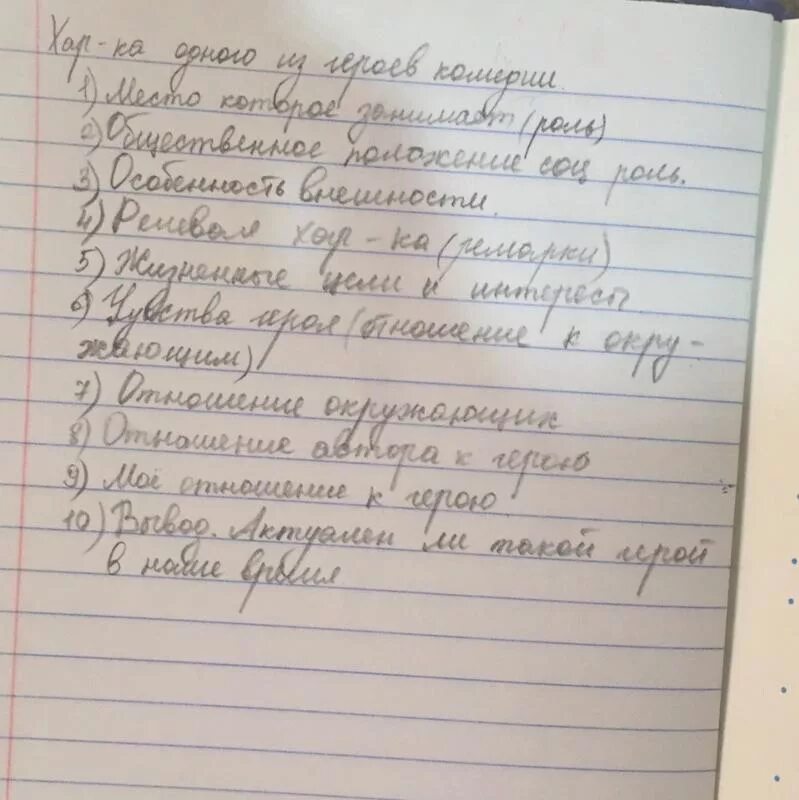 Хар-ка одного из героев комедии.
1) Место которое занимает (роль)
2) Общественное положение соц роль.
3) Особенность внешности.
4) Речевая хар-ка (ремарки)
5) Жизненные цели и интересы
6) Чувства героя (отношение к окру-
жающим)
7) Отношение окружающих
8) Отношение автора к герою
9) Моё отношение к герою
10) Вывод. Актуален ли такой герой
в наше время